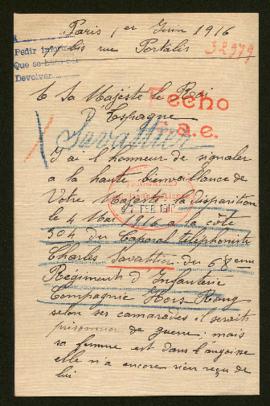 Paris 1er Juin 1916
bis rue Portalis
32979
Pedir informes
Que se
Devolver
A Sa Majesté le Roi
D'Espagne
echo
a.e.
Savattier
J'ai l'honneur de signaler
à la haute bienveillance de
Votre Majesté la disparition
le 4 Mai 1916 à la côte
304 du Caporal téléphoniste
Charles Savattier du 68eme
Regiment d'Infanterie
Compagnie Hors Rang
selon ses camarades il serait
prisonnier de guerre; mais
sa femme est dans l'angoisse
elle n'a encore rien reçu de
lui